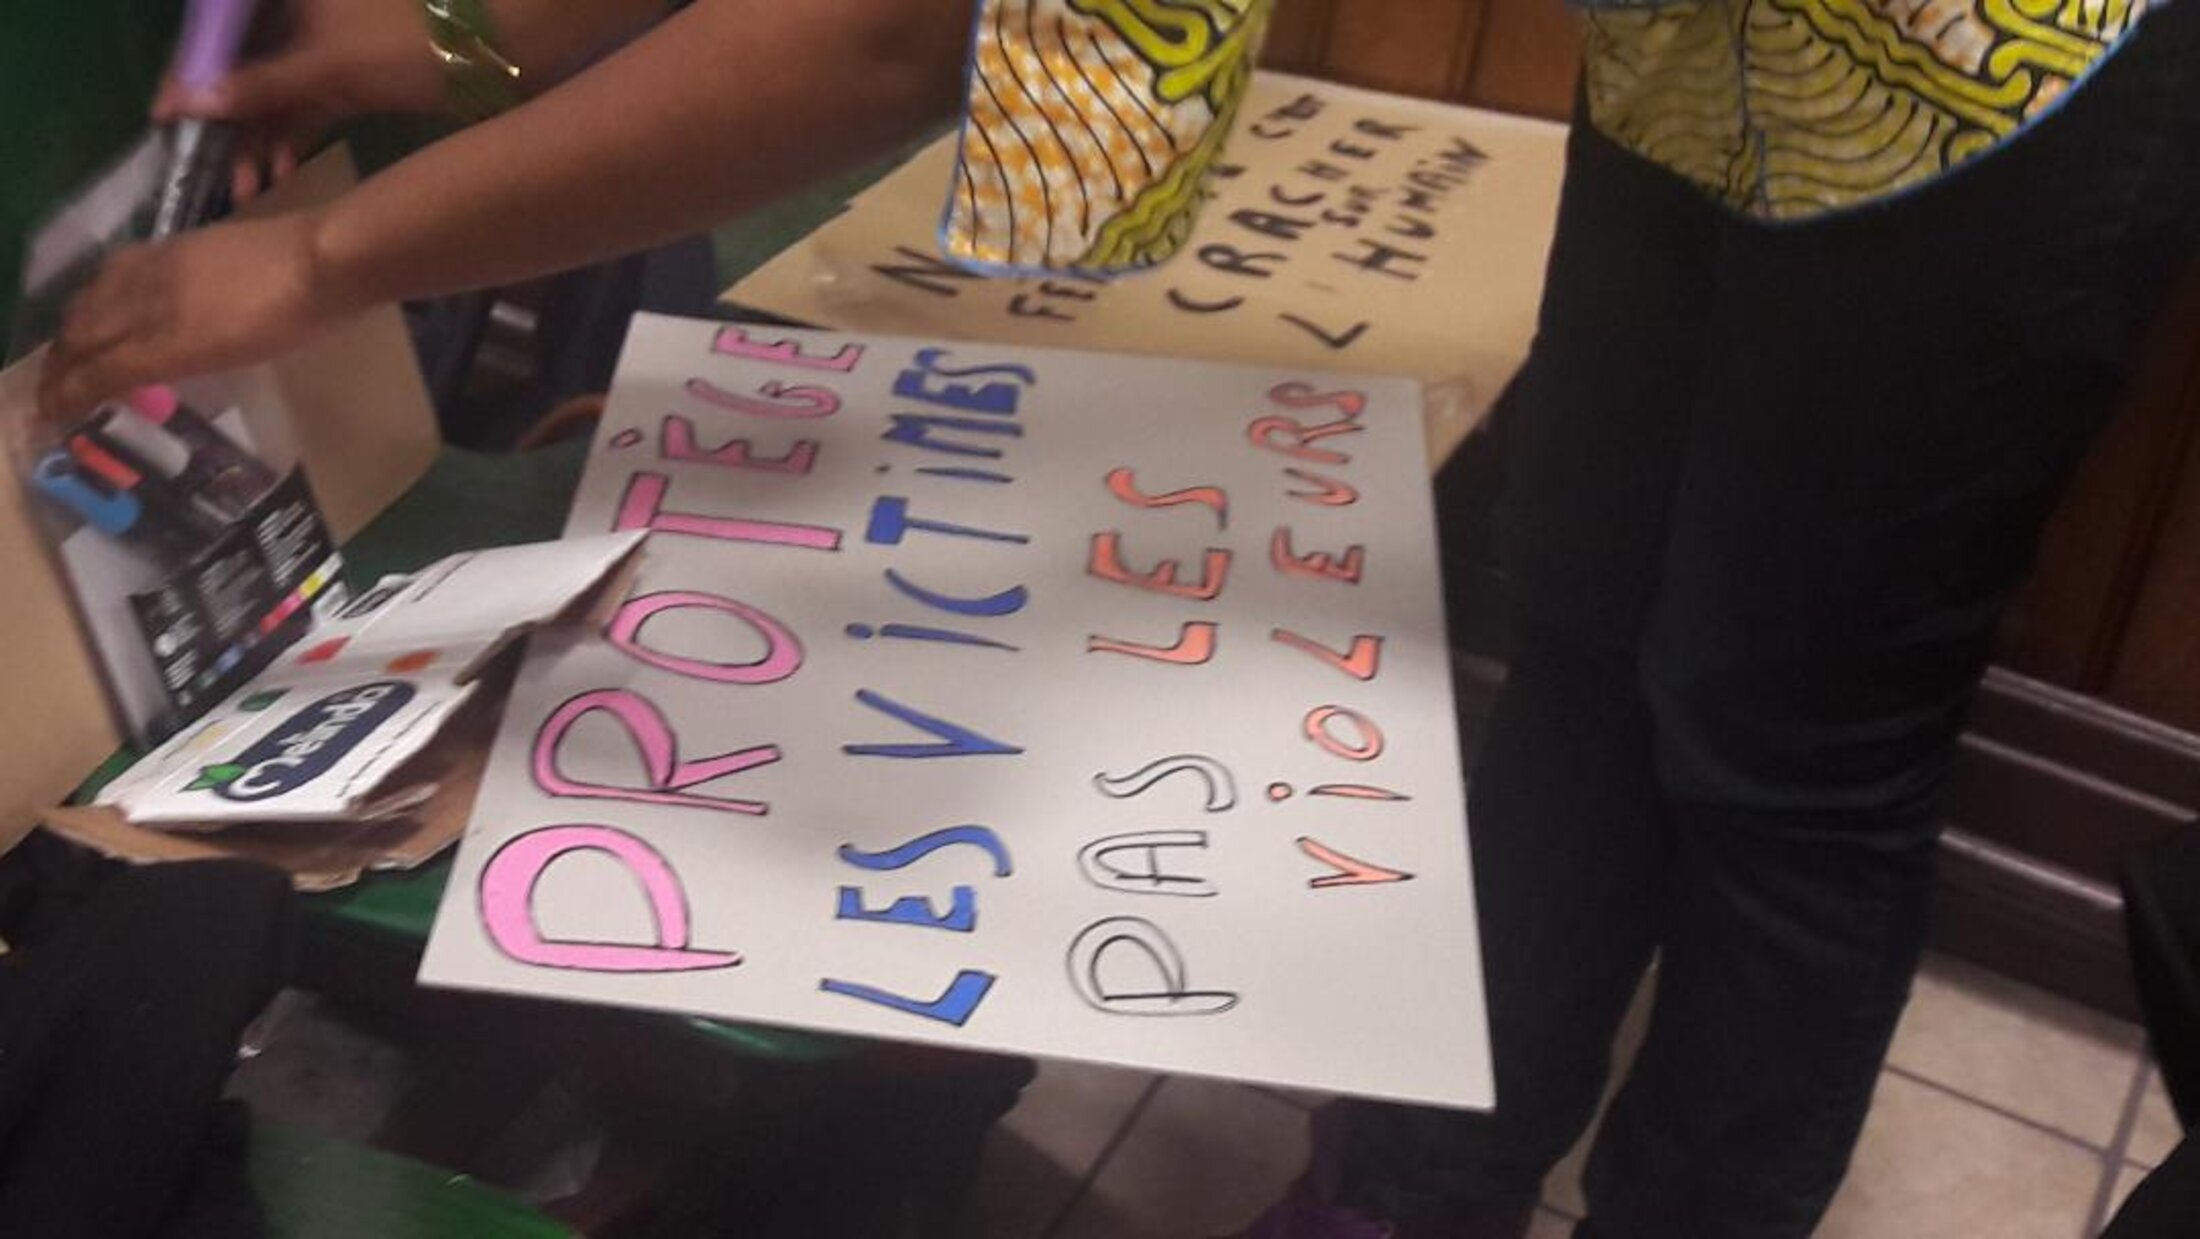 PROTÈGE
LES VICTIMES
PAS LES
VIOLEURS
CRACHER
SUR
L'HUMAIN
Melinda